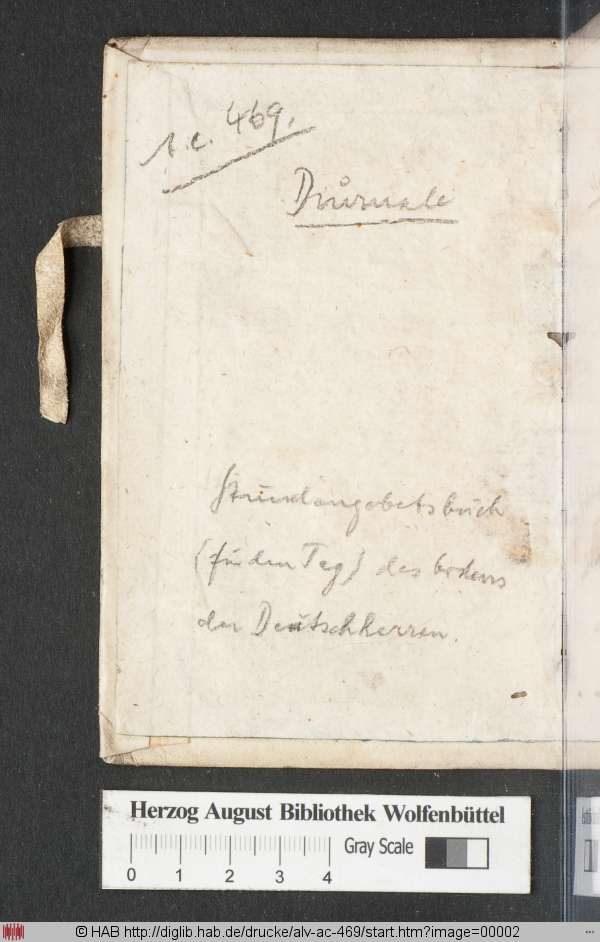 A.c. 469.
Diurnale
Stundengebetsbuch
(für den Tag) des Ordens
der Deutschherren.
Herzog August Bibliothek Wolfenbüttel
Gray Scale
0 1 2 3 4
© HAB http://diglib.hab.de/drucke/alv-ac-469/start.htm?image=00002